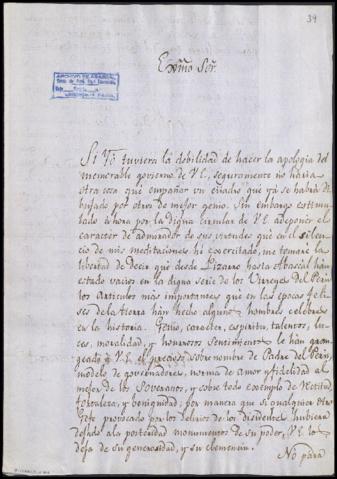 39
Exmo Sor.
ARCHIVO DE ABASCAL
Si Yó tuviera la debilidad de hacer la apología del
memorable govierno de V.E, seguramente no haría
otra cosa que empañar un cuadro que yá se habrá di
bujado por otros de mejor genio. Sin embargo estimu
lado ahora por la digna circular de V.E. á deponer el
caracter de admirador de sus virtudes que en el silen
cio de mis meditaciones hé exercitado, me tomaré la
libertad de decir que desde Pizarro hasta Abascal han
estado varios en la digna serie de los Virreyes del Perú
los articulos más importantes que en las epocas feli
ses de la tierra han hecho algunos hombres celebres
en la historia. Genio, caracter, espiritu, talentos, lu
ces, moralidad, y honrosos sentimientos le han gran
geado á V.E. el precioso sobre nombre de Padre del Perú,
modelo de governadores, norma de amor y fidelidad al
mejor de los Soveranos, y sobre todo exemplo de rectitud,
fortaleza, y benignidad; por manera que si qualquier otro
Gefe provocado por los delirios de los disidentes hubiera
dejado á la posteridad monumentos de su poder, V.E. lo
deja de su generosidad, y su clemencia.
No para